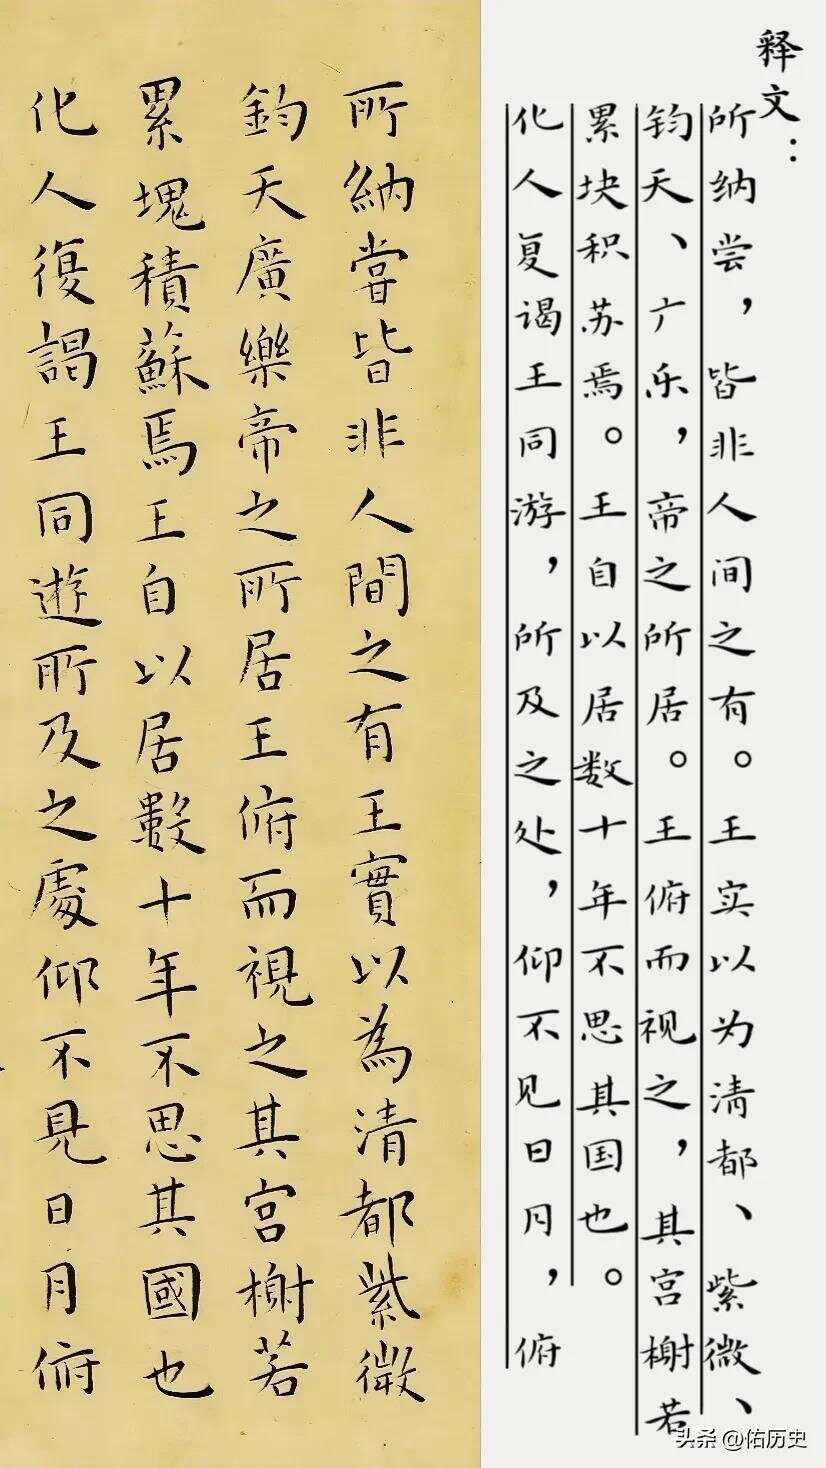 所納嘗皆非人間之有王實以為清都紫微
鈞天廣樂帝之所居王俯而視之其宮榭若
累塊積蘇焉王自以居數十年不思其國也
化人復謁王同遊所及之處仰不見日月俯
释文：
所纳尝，皆非人间之有。王实以为清都、紫微、
钧天、广乐，帝之所居。王俯而视之，其宫榭若
累块积苏焉。王自以居数十年不思其国也。
化人复谒王同游，所及之处，仰不见日月，俯
头条 @佑历史